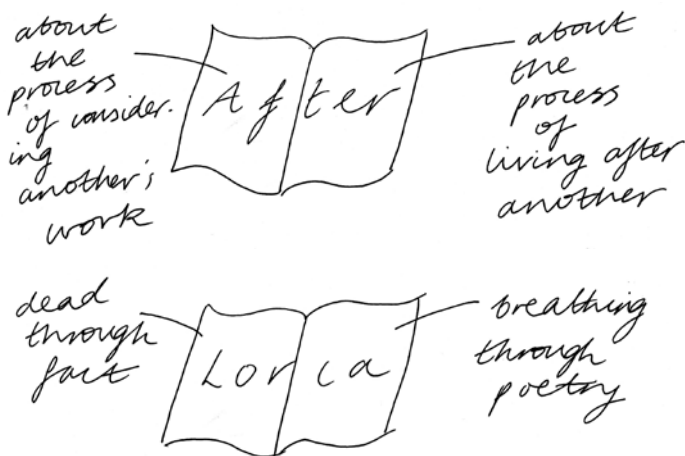 about
the
process
of consider.
ing
another's
work
After
about
the
process
of
living after
another
dead
through
fact
Lorca
breathing
through
poetry